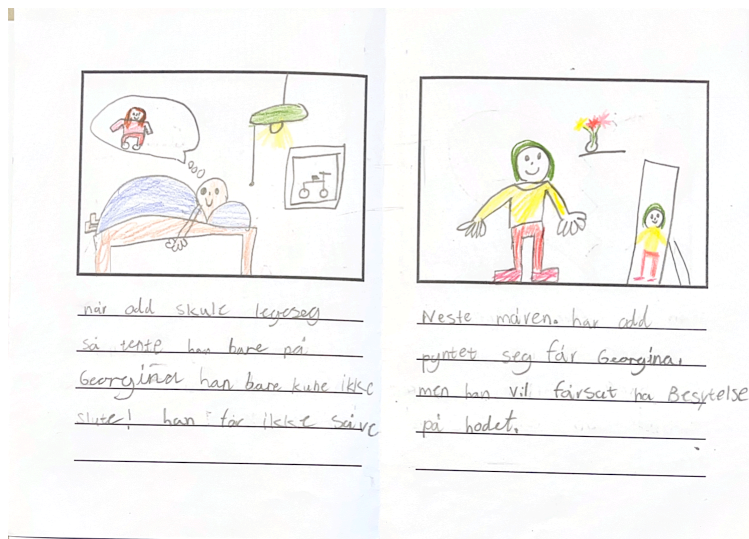 når odd skule legeseg
så tente han bare på
Georgina han bare kune ikke
slute! han får ikke såve
Neste måren. har odd
pyntet seg får Georgina.
men han vil fårsat ha Besytelse
på hodet.